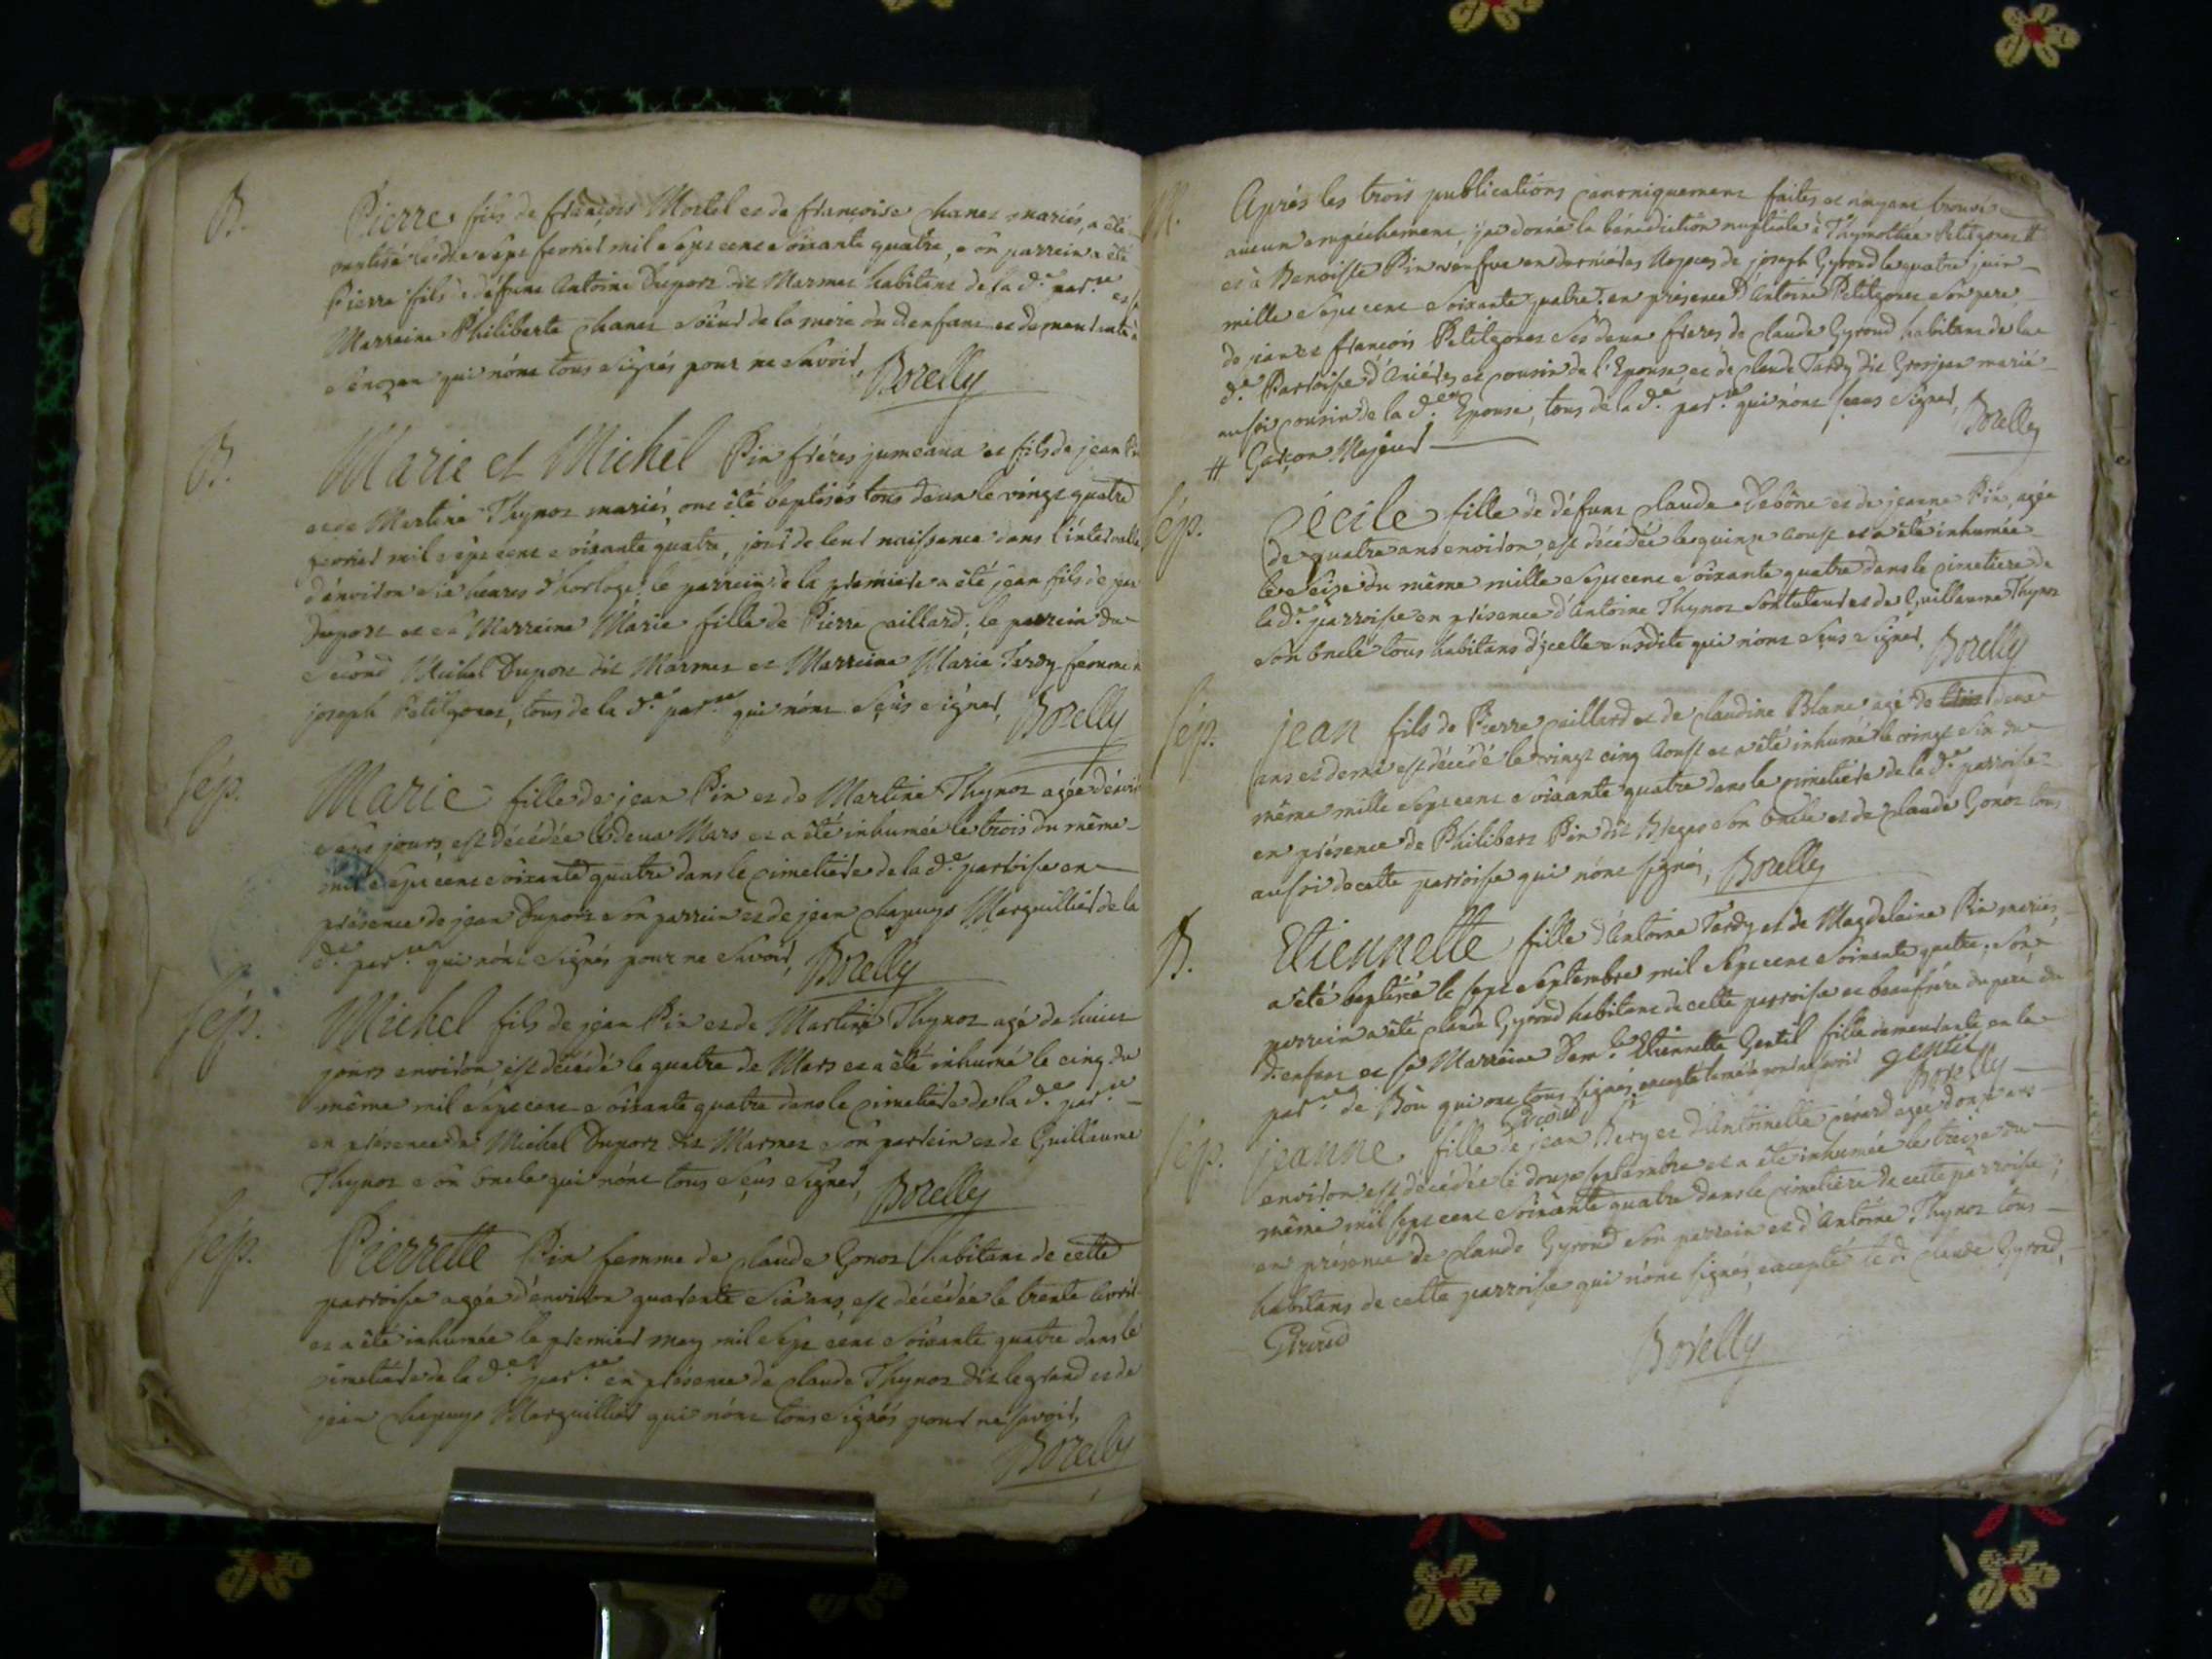 B.
Pierre fils de françois Mortel et de françoise Chanet mariés, a été
baptisé le dix sept fevrier mil sept cent soixante quatre, son parrein a été
Pierre fils de défunt Antoine Duport dit Marmet habitant de la de. par.se et sa
Marreine Philiberte Chanet soeur de la mere du d. enfant et demeurante à
Senozan qui n'ont tous signés pour ne savoir, Borelly
B.
Marie et Michel Pin fréres jumeaux et fils de jean Pin
et de Martine Thynot mariés, ont été baptisés tous deux le vingt quatre
fevrier mil sept cent soixante quatre, jour de leur naissance dans l'intervalle
d'environ six heures d'horloge: le parrein de la premiere a été jean fils de jean
Duport et sa Marreine Marie fille de Pierre Caillard; le parrein du
second Michel Duport dit Marmet et Marreine Marie Tardy femme de
joseph Petitgonet, tous de la de. par.se qui n'ont sçus signer, Borelly
Sép.
Marie fille de jean Pin et de Martine Thynot agée d'environ
sept jours, est décédée le deux Mars et a été inhumée le trois du même
mil sept cent soixante quatre dans le cimetiere de la de. parroisse en
présence de jean Duport son parrein et de jean Chapuys Marguillier de la
de. par.se qui n'ont signés pour ne savoir, Borelly
Sép.
Michel fils de jean Pin et de Martine Thynot agé de huit
jours environ, est décédé le quatre de Mars et a été inhumé le cinq du
même mil sept cent soixante quatre dans le cimetiere de la de. par.se
en présence de Michel Duport dit Marmet son parrein et de Guillaume
Thynot son oncle qui n'ont tous sçus signer, Borelly
Sép.
Pierrette Pin femme de Claude Gonot habitant de cette
parroisse agée d'environ quarente six ans, est décédée le trente Avril
et a été inhumée le premier may mil sept cent soixante quatre dans le
cimetiere de la de. par.se en présence de Claude Thynot dit le grand et de
jean Chapuys Marguillier qui n'ont tous signés pour ne savoir,
Borelly
M.
Après les trois publications canoniquement faites et n'ayant trouvé
aucun empéchement, j'ai donné la bénédiction nuptiale à Thymothée Petitgonet #
et à Benoiste Pin veufve en derniéres Nopces de joseph Gyroud le quatre juin
mille sept cent soixante quatre: en présence d'Antoine Petitgonet son pere
de jean et françois Petitgonet ses deux freres, de Claude Gyroud habitant de la
de. Parroisse d'Aniéres et cousin de l'Epouse, et de Claude Tardy dit Grosjean marié
aussi cousin de la de. Epouse, tous de la de. par.se qui n'ont sceus signer,
Borelly
# Garçon Majeur
Sép.
Cécile fille de défunt Claude Debône et de jeanne Pin, agée
de quatre ans environ, est décédée le quinze Aoust et a été inhumée
le seize du même mille sept cent soixante quatre dans le cimetiere de
la de. parroisse en présence d'Antoine Thynot son tuteur et de Guillaume Thynot
son oncle tous habitans d'ycelle susdite qui n'ont sçus signer, Borelly
Sép.
jean fils de Pierre Caillard et de Claudine Blanc agé de trois deux
ans et demi est décédé le vingt cinq Aoust et a été inhumé le vingt six du
même mille sept cent soixante quatre dans le cimetiere de la de. parroisse
en présence de Philibert Pin dit son oncle et de Claude Gonot tous
aussi de cette parroisse qui n'ont signés, Borelly
B.
Etiennette fille d'Antoine Tardy et de Magdelaine Pin mariés,
a été baptisée le sept septembre mil sept cent soixante quatre; son
parrein a été Claude Gyroud habitant de cette parroisse et beaufrére du pere du
d. enfant et sa Marreine Dem.le Etiennette Gentil fille demeurante en la
par.se de qui ont tous signés, excepté savoir gentil
Giroud Borelly
Sép.
jeanne fille de jean Bery et d'Antoinette agée d'onze ans
environ est décédée le douze septembre et a été inhumée le treize du
même mil sept cent soixante quatre dans le cimetiere de cette parroisse;
en présence de Claude Gyroud son parrein et d'Antoine Thynot tous
habitans de cette parroisse qui n'ont signés, excepté le d. Claude Gyroud,
Giroud
Borelly